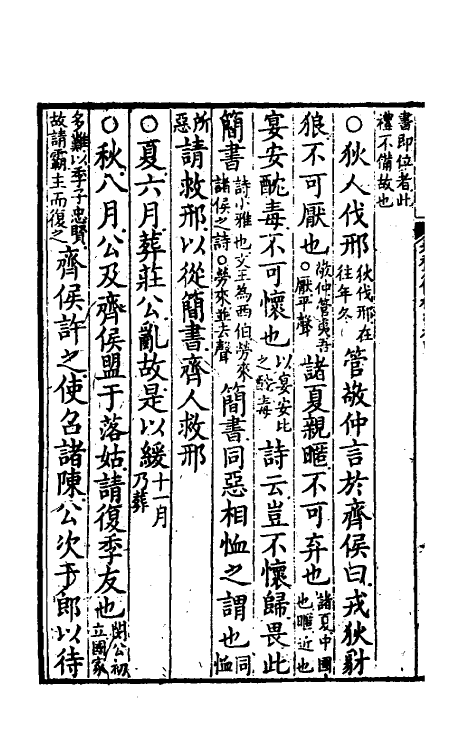 書即位者此
禮不備故也
○狄人伐邢狄伐邢在往年冬管敬仲言於齊侯曰戎狄豺
狼不可厭也敬仲管夷吾○厭平聲諸夏親暱不可弃也諸夏中國也暱近也
宴安酖毒不可懷也以宴安比之酖毒詩云豈不懷歸畏此
簡書詩小雅也文王為西伯勞來諸侯之詩○勞來並去聲簡書同惡相恤之謂也同恤
所惡請救邢以從簡書齊人救邢
○夏六月葬莊公亂故是以緩十一月乃葬
○秋八月公及齊侯盟于落姑請復季友也閔公初立國家
多難以季子忠賢故請霸主而復之齊侯許之使召諸陳公次于郎以待